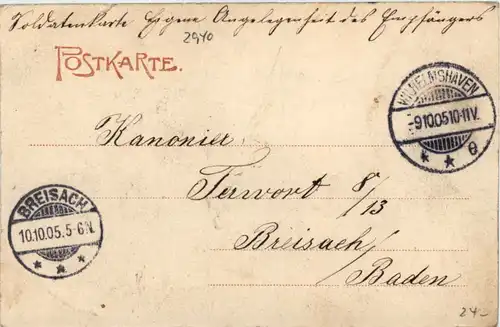 Soldatenkarte Eigene Angelegenheit des Empfängers
2940
POSTKARTE.
WILHELMSHAVEN
-9.10.05.10-11V.
* * e
Kanonier
Terwort 8/13
BREISACH
10.10.05.5-6N.
* * *
Breisach/
Baden
24.-